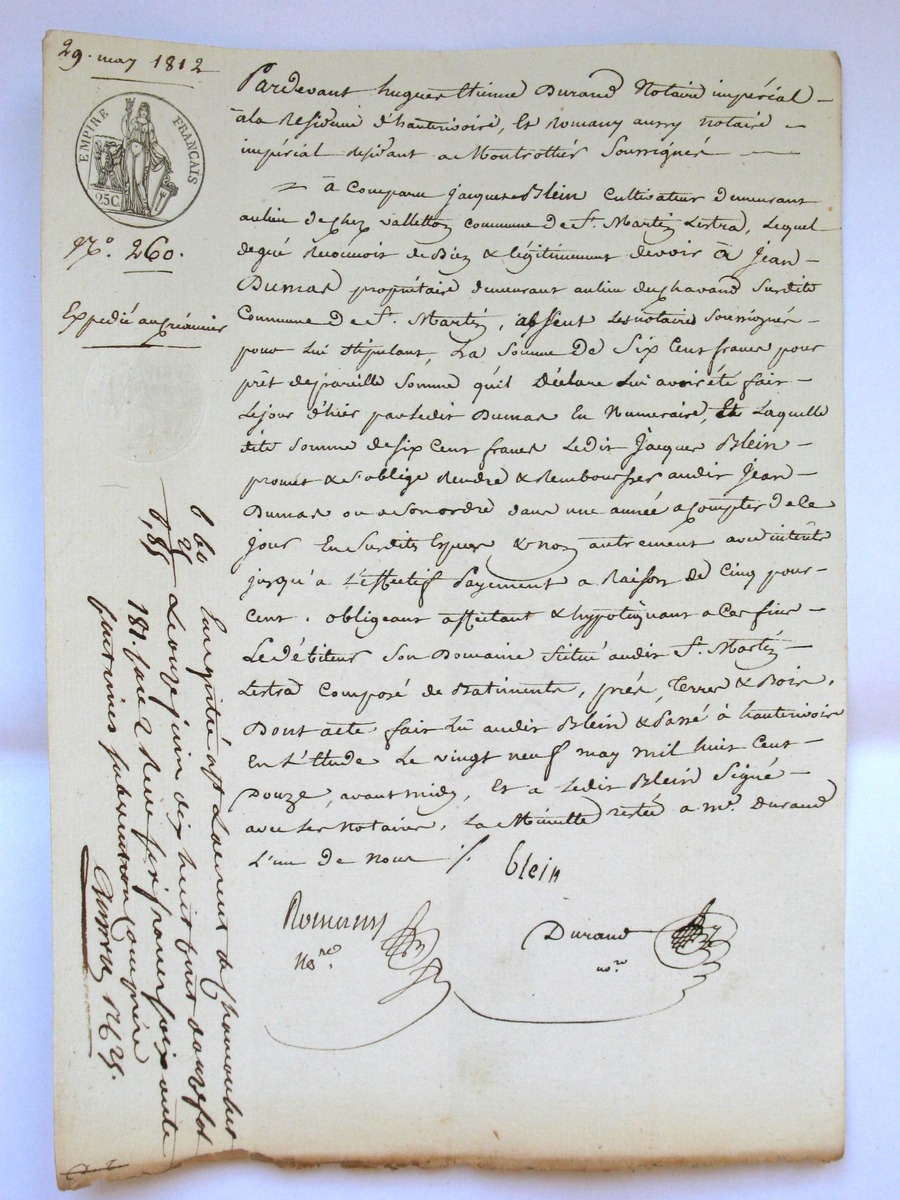 29. may 1812
EMPIRE FRANÇAIS
25C.
N.º 260.
Expedié au créancier
Pardevant hugues Etienne Durand Notaire impérial
à la Residence d'hauterivoire, Et Romany aussy notaire
impérial residant a Montrottier Soussignés
à Comparu Jacques Blein Cultivateur demeurant
au lieu de chez vallettoz commune de St. Martin Lestra, Lequel
de gré Reconnoit de Bien & légitimement devoir à Jean
Dumas propriétaire demeurant au lieu du chavand Susdite
Commune de St. Martin, absent Les notaires Soussignés
pour Lui Stipulant, La Somme de Six Cent francs pour
prêt de pareille Somme qu'il Déclare Lui avoir été fait
Le jour d'hier par Ledit Dumas En Numeraire, Laquelle
dite Somme de six Cent francs Ledit Jacques Blein
promet & s'oblige Rendre & Rembourser audit Jean
Dumas ou a Son ordre dans une année a Compter de ce
jour En Susdites Especes & non autrement avec intérêts
jusqu'a L'Effectif Payement a Raison de Cinq pour
Cent. obligeant affectant & hypotéquant a Ces fins
Le débiteur Son Domaine Situé audit St. Martin
Lestra Composé de Batiments, prés, Terres & Bois.
Dont acte fait Lu audit Blein & Passé à hauterivoir
En L'Etude Le vingt neuf may mil huit Cent
Douze, avant midy, Et a Ledit Blein Signé
avec Les Notaires. La Minutte restée a me. Durand
L'un de Nous ./.
blein
Romany
No.re
Durand
no.re
6 60
Enregistré a St Laurent de chamousset
Le onze juin dix huit cent douze fol
181. six francs soixante
centimes subvention comprise